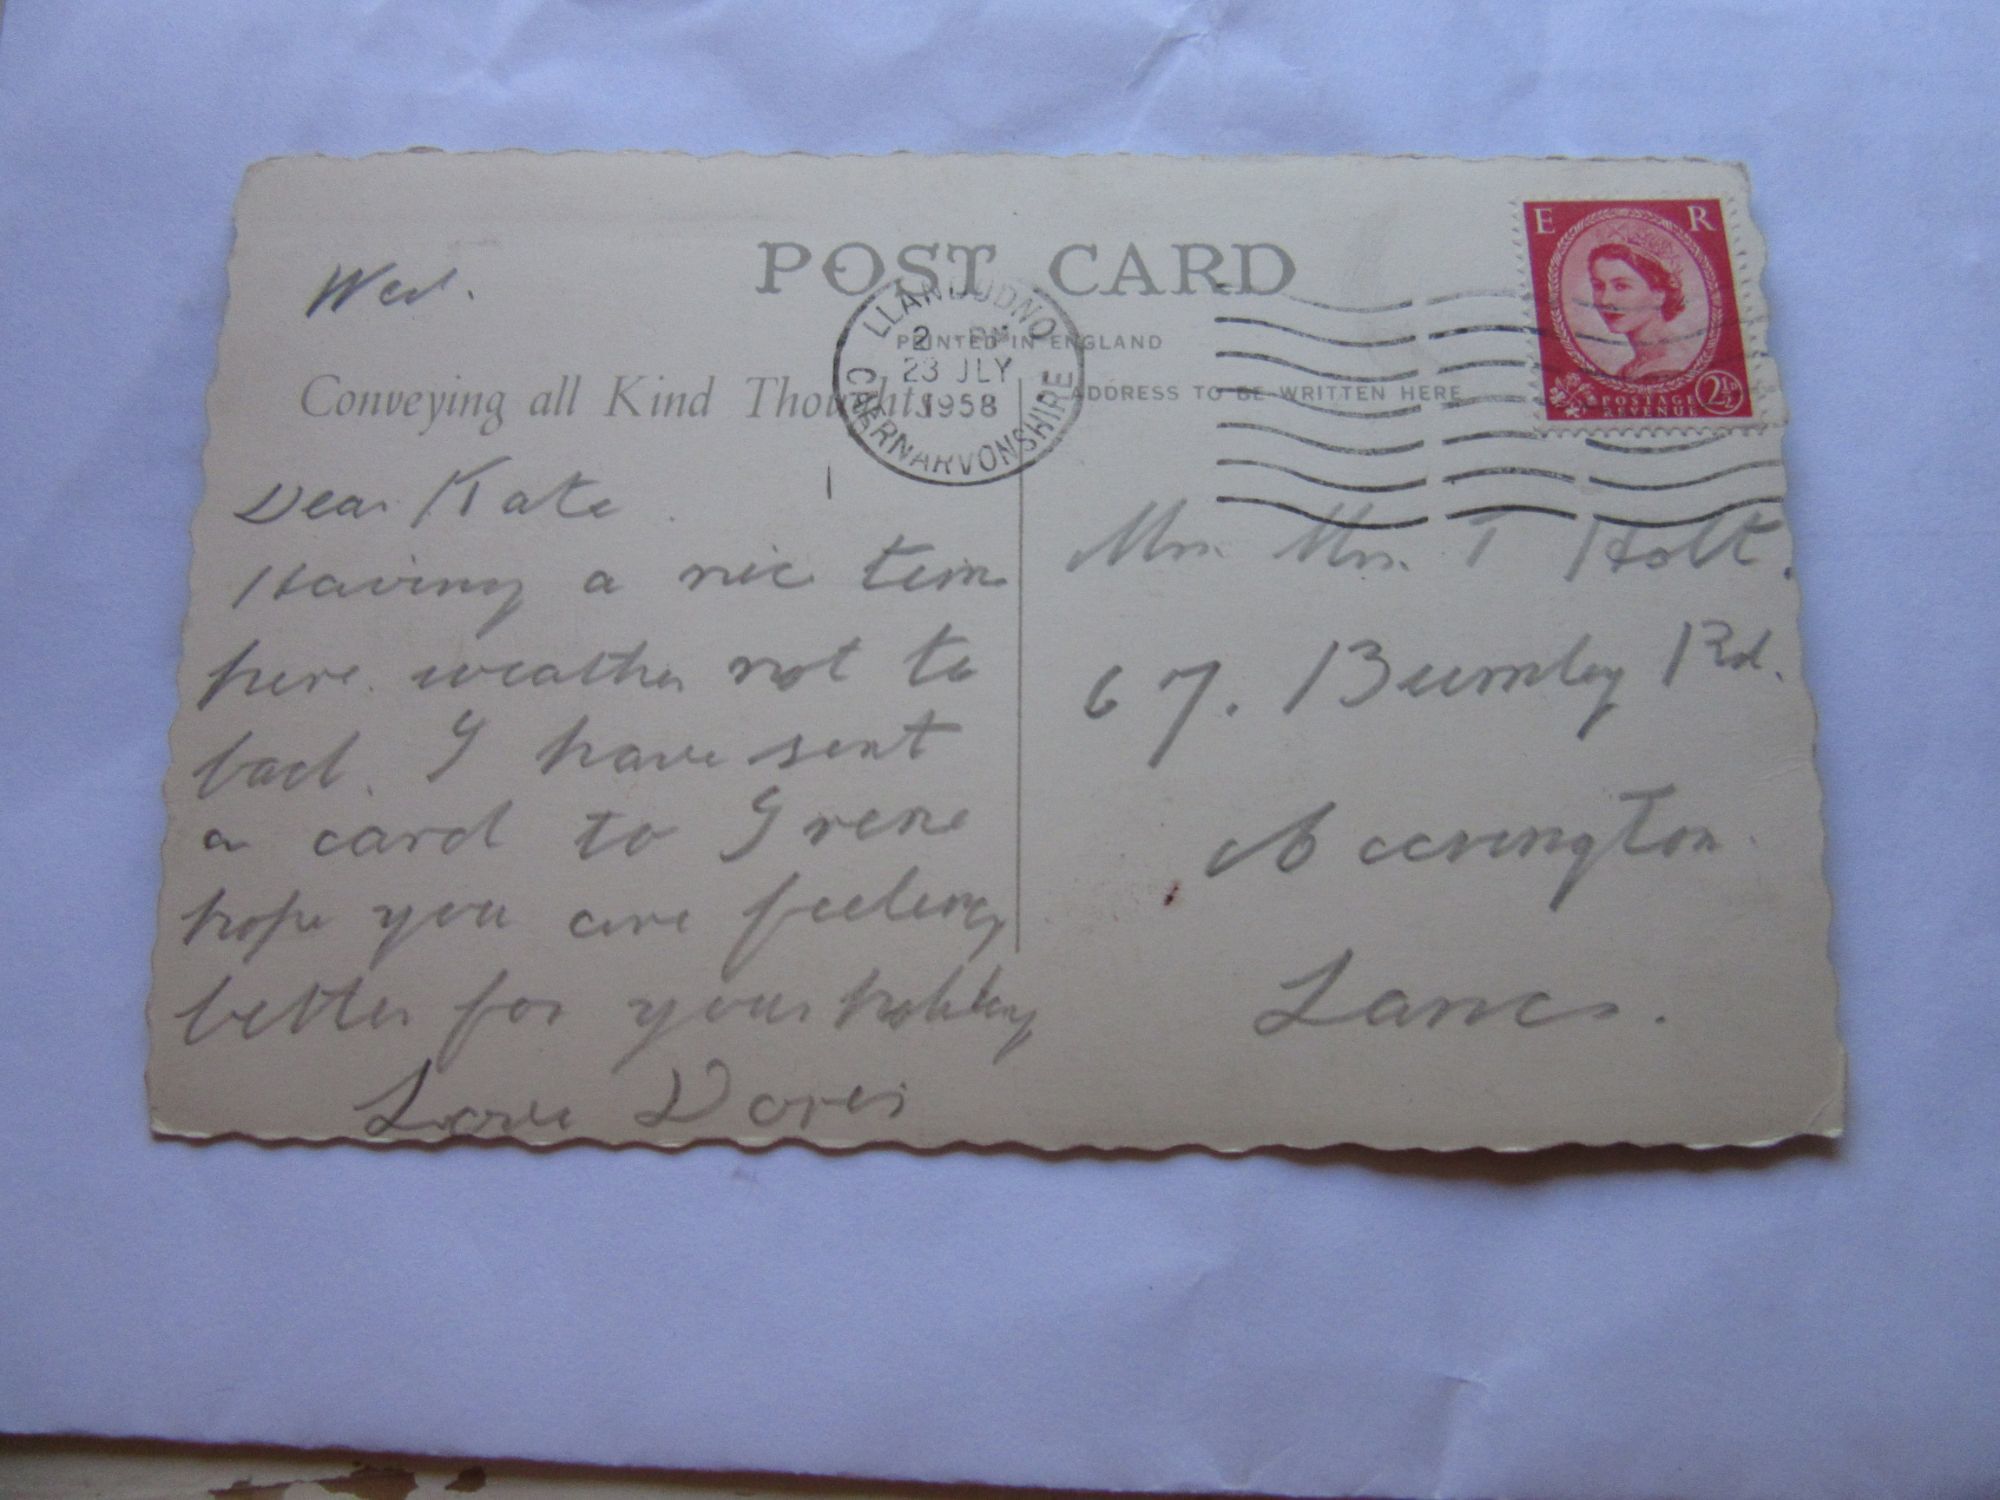 POST CARD
PRINTED IN ENGLAND
Conveying all Kind Thoughts
ADDRESS TO BE WRITTEN HERE
LLANDUDNO
2 PM
23 JLY
1958
CAERNARVONSHIRE
E R
POSTAGE
REVENUE
2½D
Wed.
Dear Kate
Having a nice time
here. weather not to
bad. I have sent
a card to Irene
hope you are feeling
better for your holiday
Love Doris
Mrs. T Holt.
67. Burnley Rd.
Accrington
Lancs.